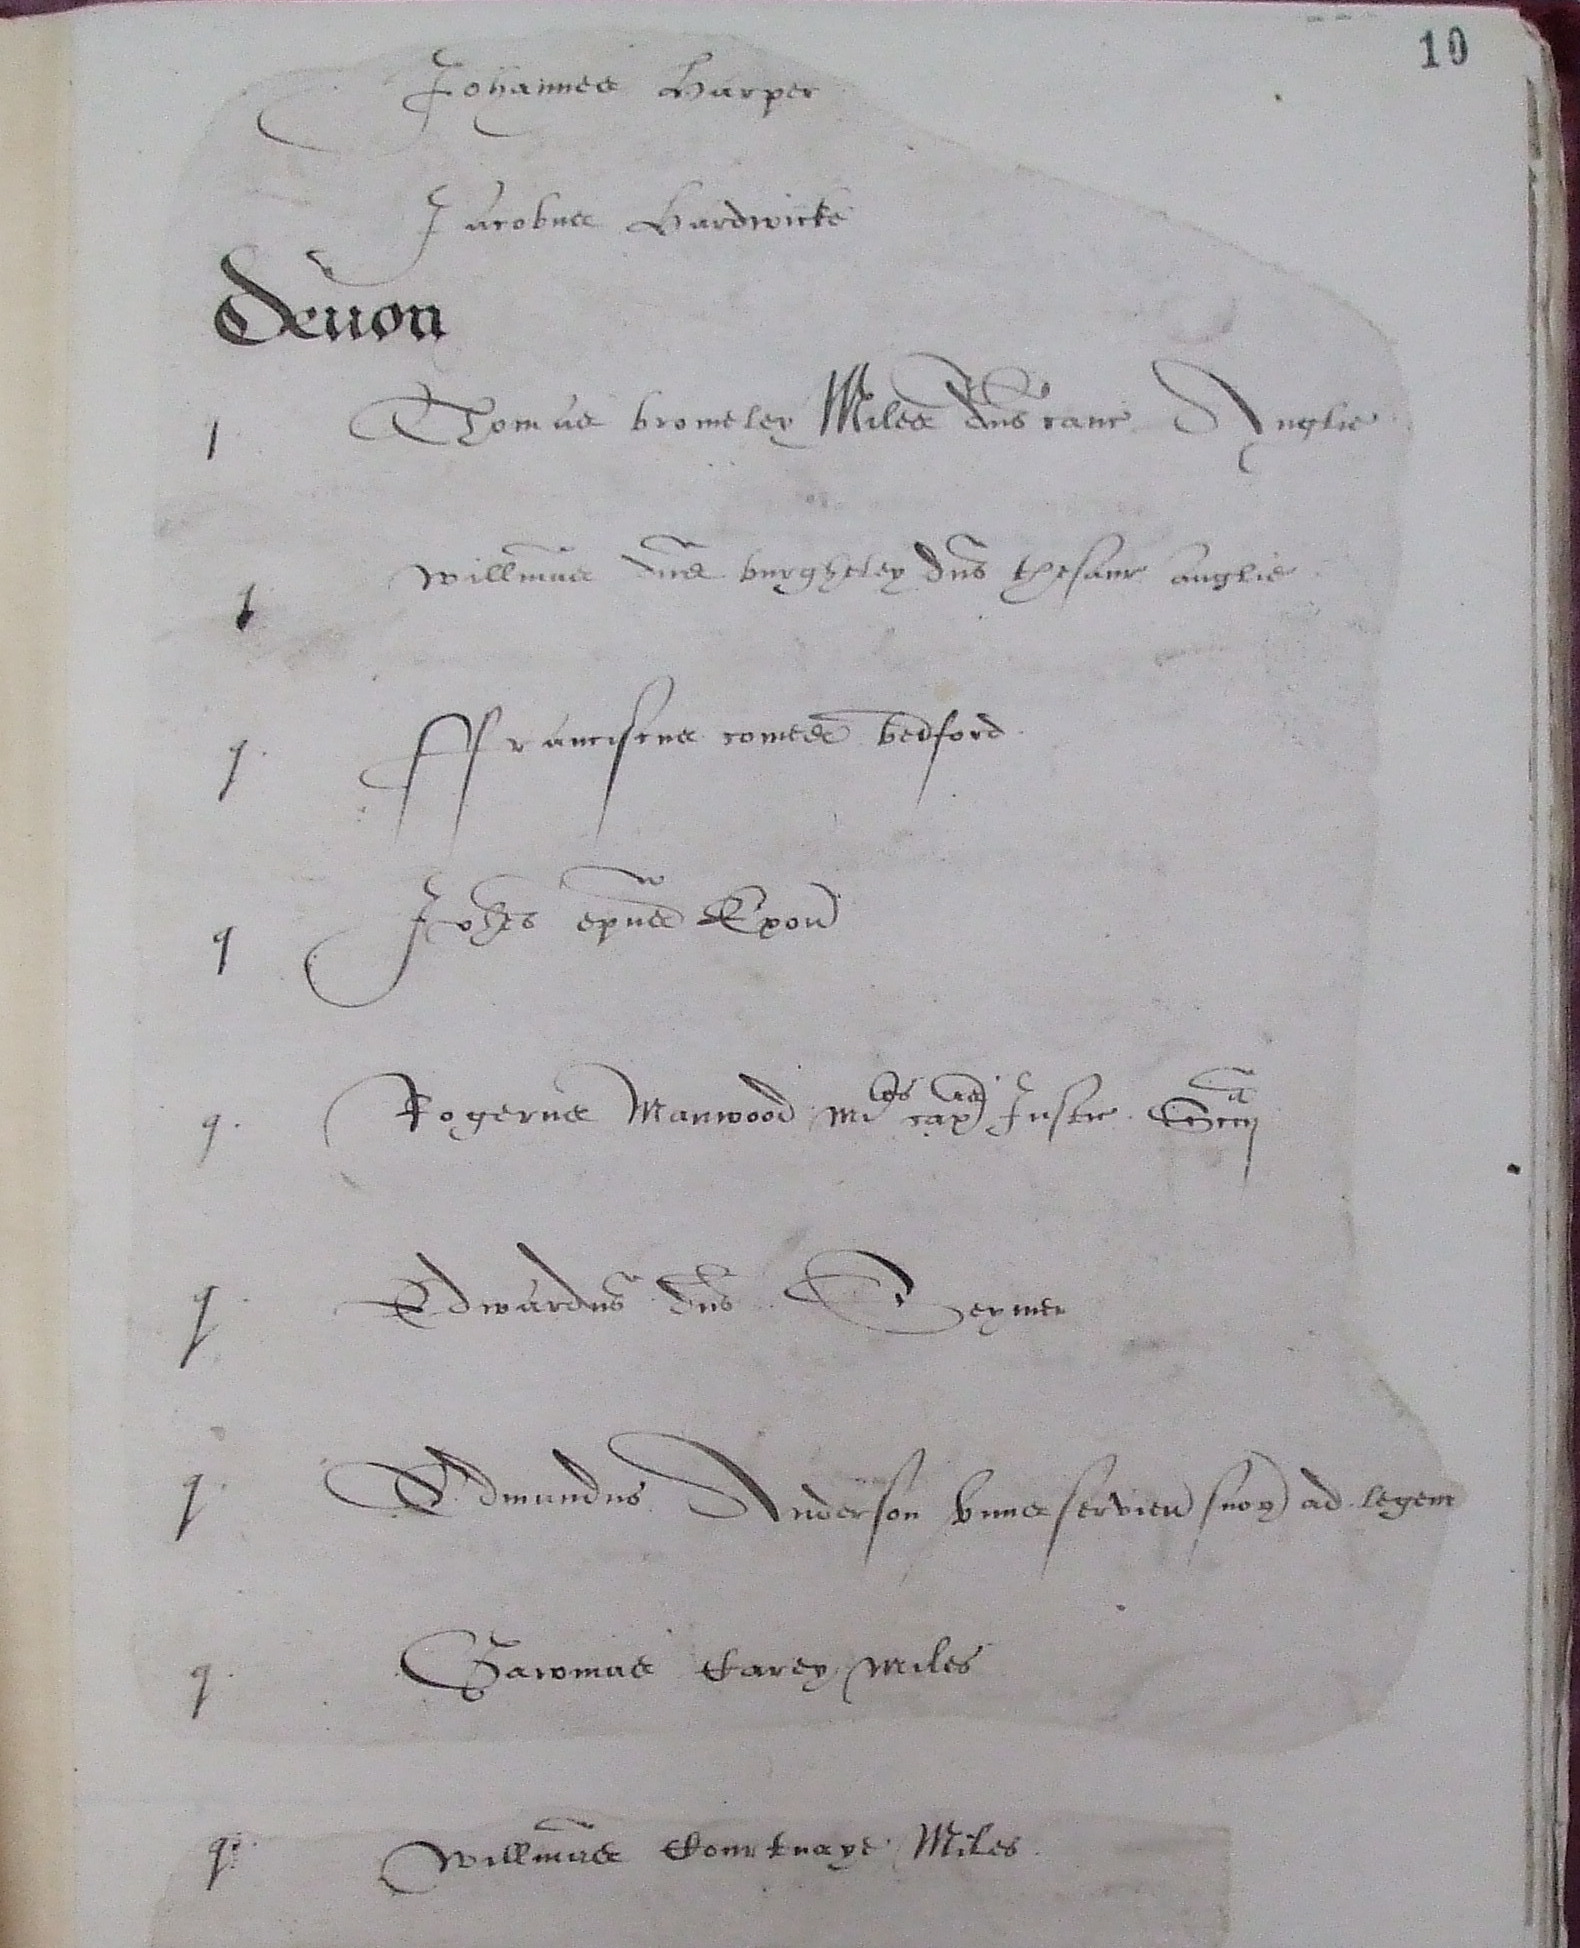 10
Johannes Harper
Jacobus Hardwicke
Deuon
Thomas bromeley Miles dns canc Anglie
q Willmus dns burgheley dns thesaur anglie
q ffranciscus comes bedford
q Johes epus Exon
q Rogerus Manwood Miles cap Justic Sccij
q Edwardus dns Seymer
q Edmundus Anderson vnus servien suoꝝ ad legem
q Gawinus Carey miles
q Willmus Courtnaye Miles